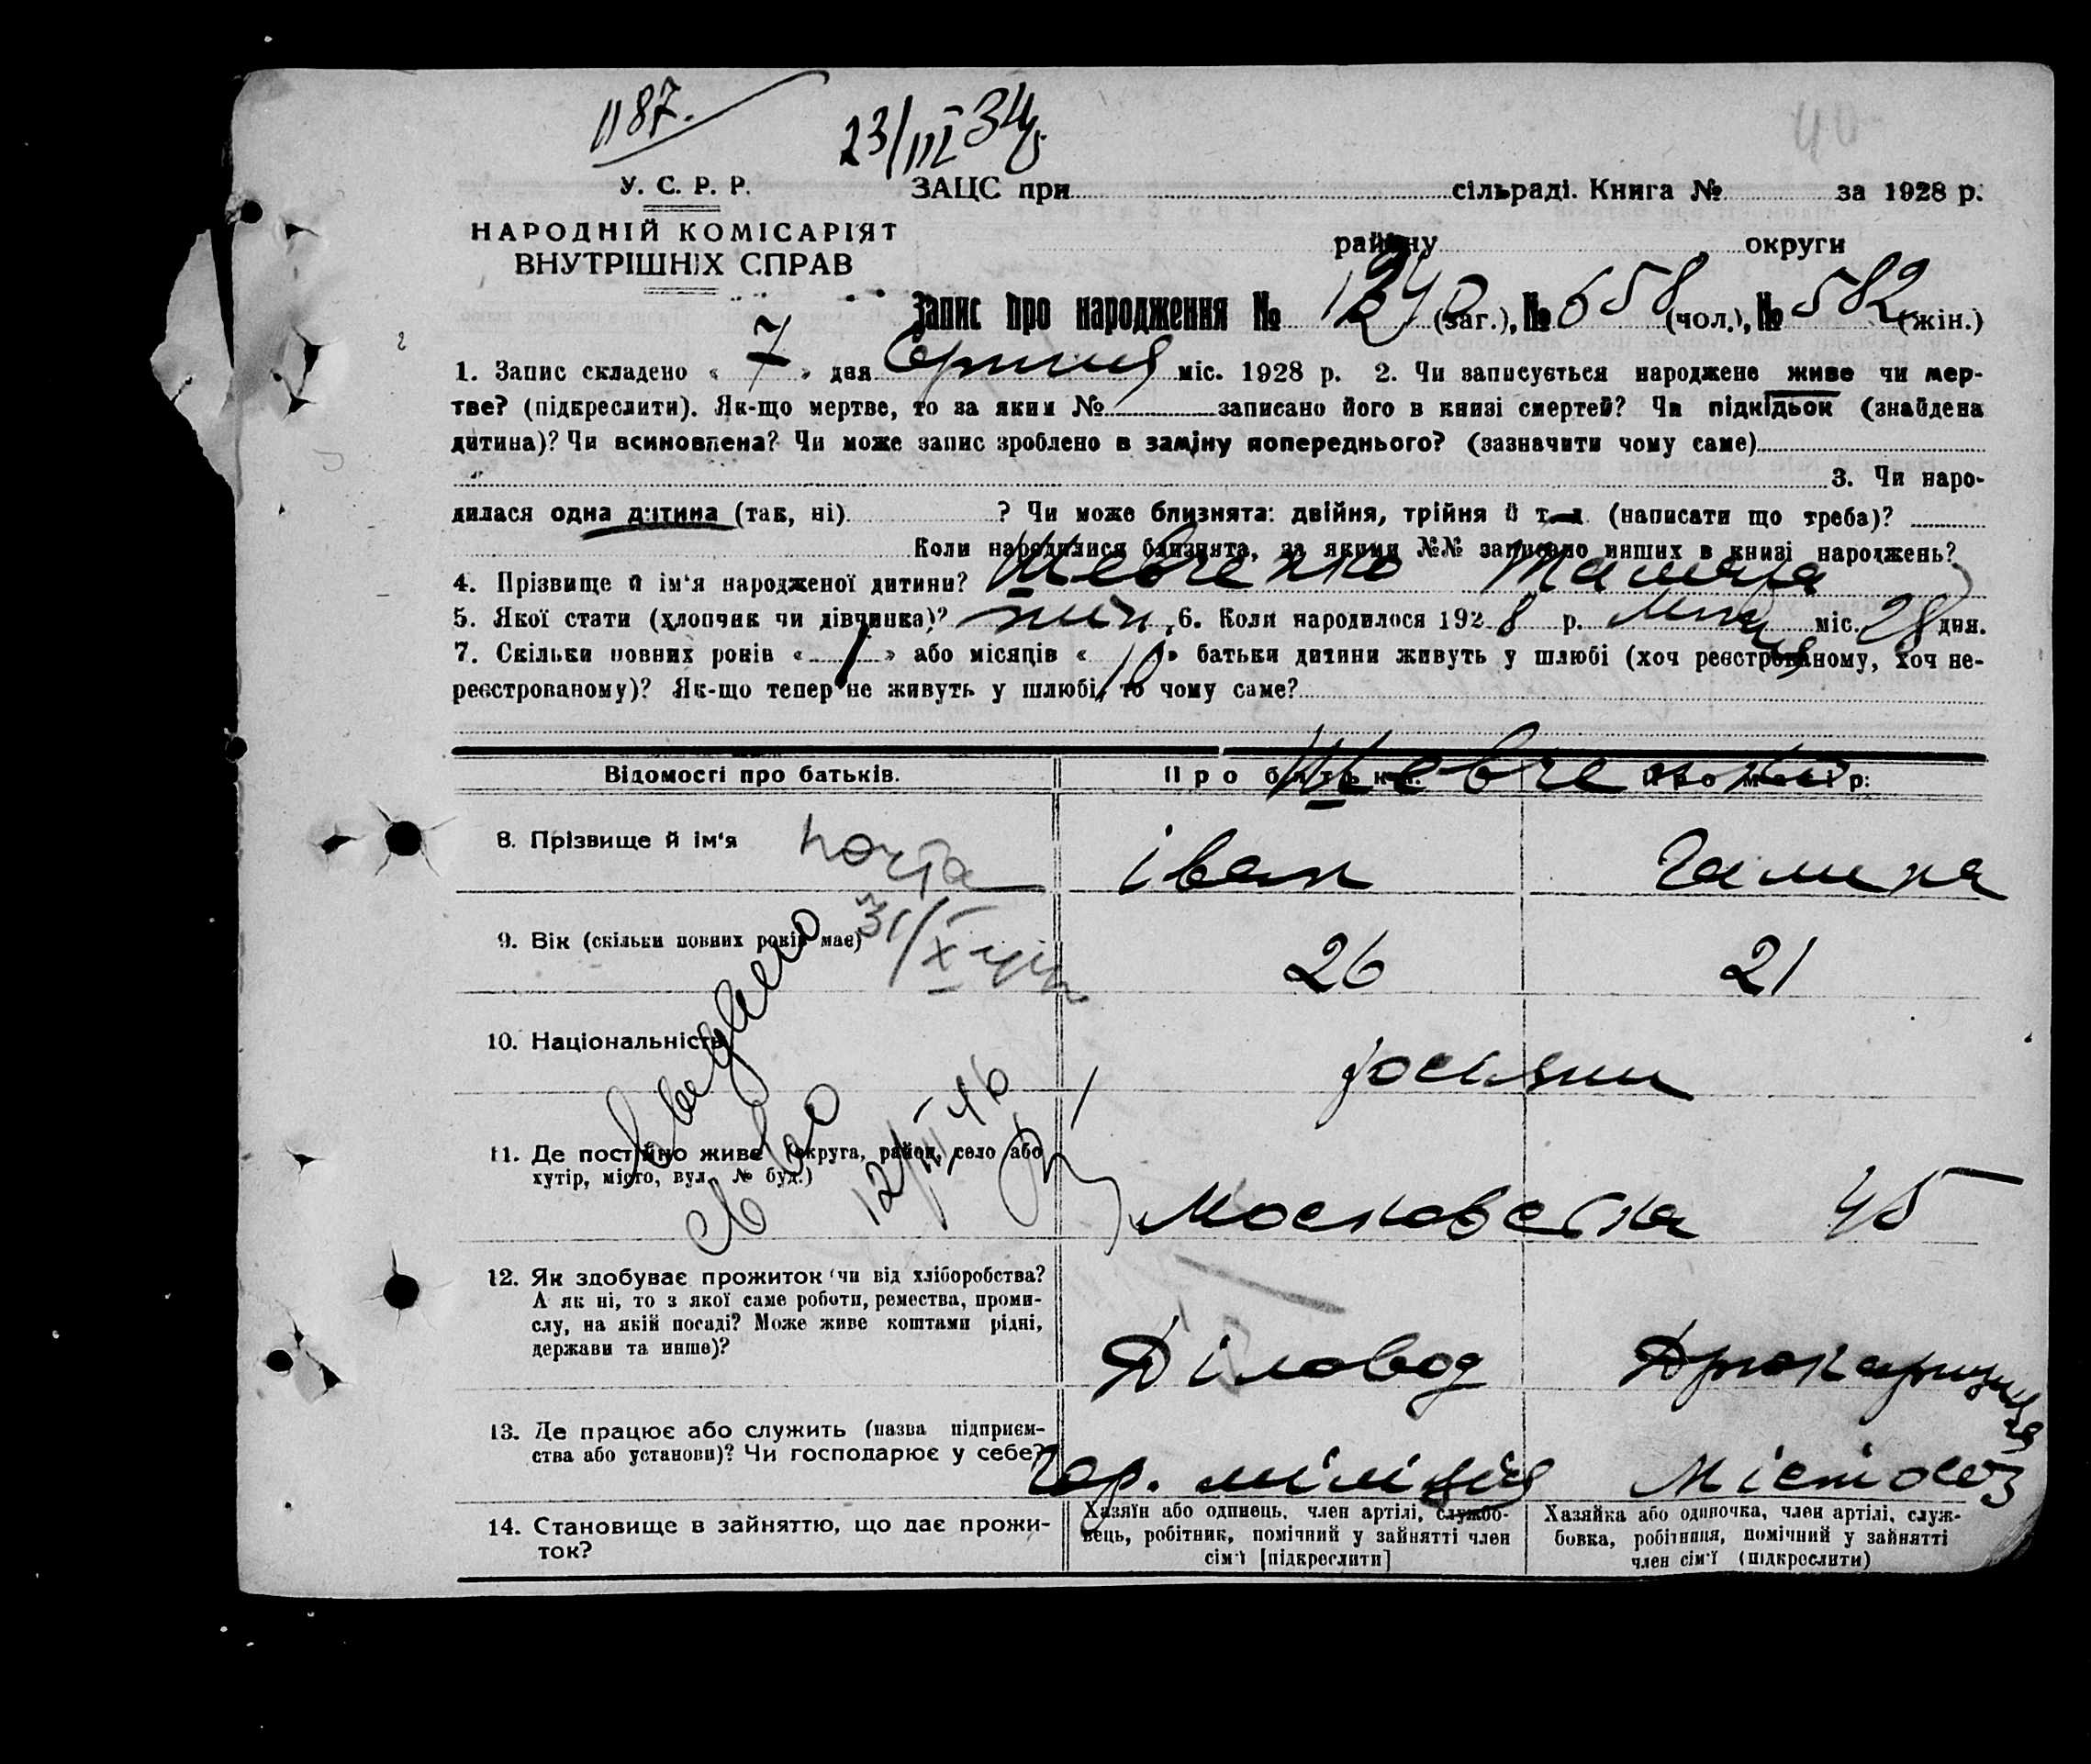 1187.
23/III 34 г.
40
У. С. Р. Р.
ЗАЦС при сільраді. Книга № за 1928 р.
НАРОДНІЙ КОМІСАРІЯТ
ВНУТРІШНІХ СПРАВ
району округи
Запис про народження № 1240 (заг.), № 658 (чол.), № 582 (жін.)
1. Запис складено « 7 » дня Серпня міс. 1928 р. 2. Чи записується народжене живе чи мер-
тве? (підкреслити). Як-що мертве, то за яким № записано його в книзі смертей? Чи підкідьок (знайдена
дитина)? Чи всиновлена? Чи може запис зроблено в заміну попереднього? (зазначити чому саме)
3. Чи наро-
дилася одна дитина (так, ні) ? Чи може близнята: двійня, трійня й т. д. (написати що треба)?
Коли народилися близнята, за якими №№ записано инших в книзі народжень?
4. Прізвище й ім'я народженої дитини? Шевченко Тамара
5. Якої стати (хлопчик чи дівчинка)? жін. 6. Коли народилося 1928 р. Липня міс. 28 дня.
7. Скільки повних років « 1 » або місяців « 10 » батьки дитини живуть у шлюбі (хоч реєстрованому, хоч не-
реєстрованому)? Як-що тепер не живуть у шлюбі, то чому саме?
Відомості про батьків. Про батька. Про матір:
Шевченко
8. Прізвище й ім'я почта Іван Галина
9. Вік (скільки повних років має) 31/X 26 21
10. Національність росіяни
11. Де постійно живе (округа, район, село або
хутір, місто, вул., № буд.) Московська 45
12/III 46
12. Як здобуває прожиток (чи від хліборобства?
А як ні, то з якої саме роботи, ремества, проми-
слу, на якій посаді? Може живе коштами рідні,
держави та инше)? Діловод Друкарниця
13. Де працює або служить (назва підприєм-
ства або установи)? Чи господарює у себе? Гор. міліція Містіосоз
14. Становище в зайняттю, що дає прожи-
ток?
Хазяїн або одинець, член артілі, службо-
вець, робітник, помічний у зайнятті член
сім'ї [підкреслити]
Хазяйка або одиночка, член артілі, служ-
бовка, робітниця, помічний у зайнятті
член сім'ї (підкреслити)